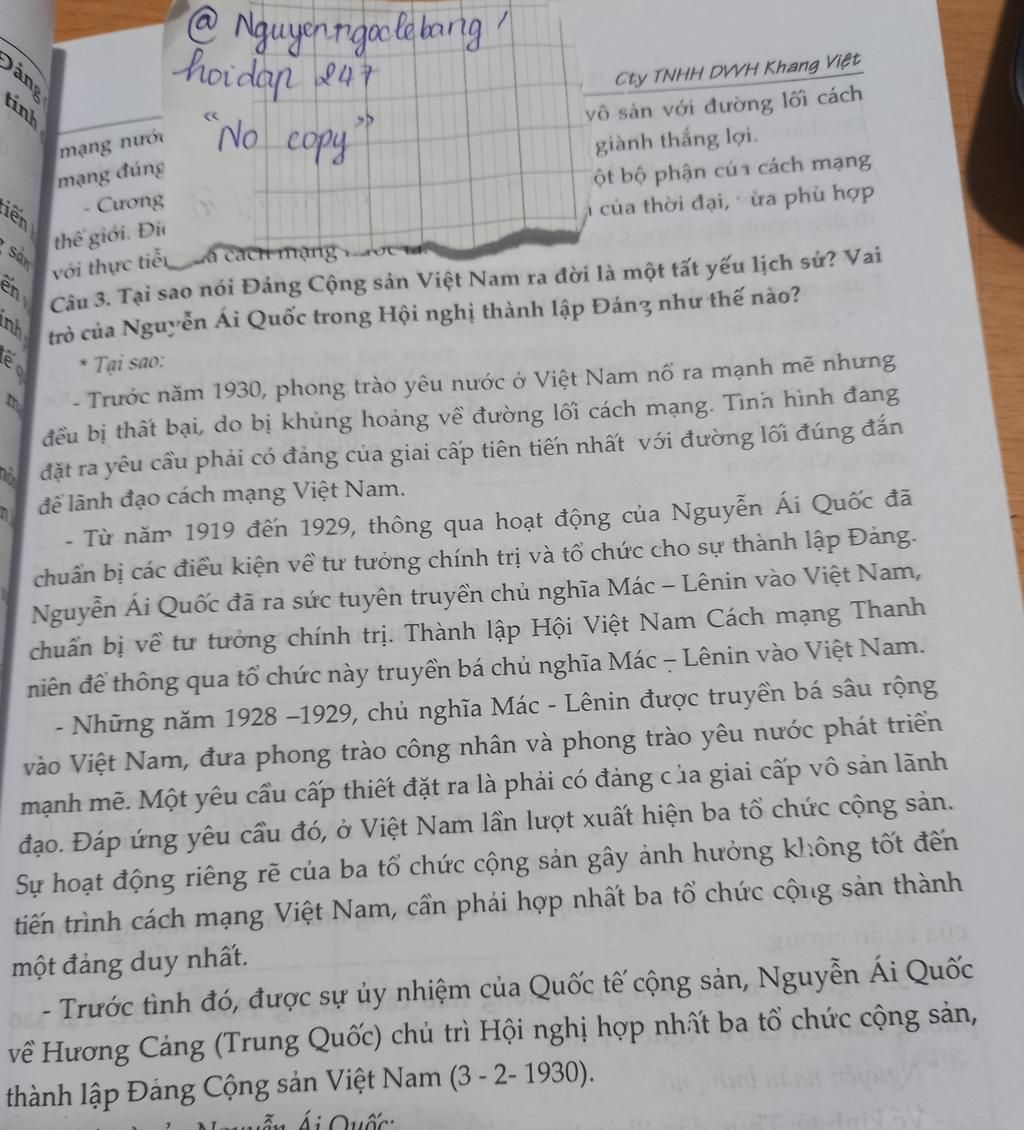 @ Nguyenngoclebang
hoidap 247
"No copy"
Đảng
tính
Cty TNHH DVVH Khang Việt
mạng nước vô sản với đường lối cách
mạng đúng giành thắng lợi.
- Cương một bộ phận của cách mạng
thế giới. của thời đại, vừa phù hợp
với thực tiễn cách mạng
Câu 3. Tại sao nói Đảng Cộng sản Việt Nam ra đời là một tất yếu lịch sử? Vai
trò của Nguyễn Ái Quốc trong Hội nghị thành lập Đảng như thế nào?
* Tại sao:
- Trước năm 1930, phong trào yêu nước ở Việt Nam nổ ra mạnh mẽ nhưng
đều bị thất bại, do bị khủng hoảng về đường lối cách mạng. Tình hình đang
đặt ra yêu cầu phải có đảng của giai cấp tiên tiến nhất với đường lối đúng đắn
để lãnh đạo cách mạng Việt Nam.
- Từ năm 1919 đến 1929, thông qua hoạt động của Nguyễn Ái Quốc đã
chuẩn bị các điều kiện về tư tưởng chính trị và tổ chức cho sự thành lập Đảng.
Nguyễn Ái Quốc đã ra sức tuyên truyền chủ nghĩa Mác – Lênin vào Việt Nam,
chuẩn bị về tư tưởng chính trị. Thành lập Hội Việt Nam Cách mạng Thanh
niên để thông qua tổ chức này truyền bá chủ nghĩa Mác – Lênin vào Việt Nam.
- Những năm 1928 –1929, chủ nghĩa Mác - Lênin được truyền bá sâu rộng
vào Việt Nam, đưa phong trào công nhân và phong trào yêu nước phát triển
mạnh mẽ. Một yêu cầu cấp thiết đặt ra là phải có đảng của giai cấp vô sản lãnh
đạo. Đáp ứng yêu cầu đó, ở Việt Nam lần lượt xuất hiện ba tổ chức cộng sản.
Sự hoạt động riêng rẽ của ba tổ chức cộng sản gây ảnh hưởng không tốt đến
tiến trình cách mạng Việt Nam, cần phải hợp nhất ba tổ chức cộng sản thành
một đảng duy nhất.
- Trước tình đó, được sự ủy nhiệm của Quốc tế cộng sản, Nguyễn Ái Quốc
về Hương Cảng (Trung Quốc) chủ trì Hội nghị hợp nhất ba tổ chức cộng sản,
thành lập Đảng Cộng sản Việt Nam (3 - 2- 1930).
Nguyễn Ái Quốc: